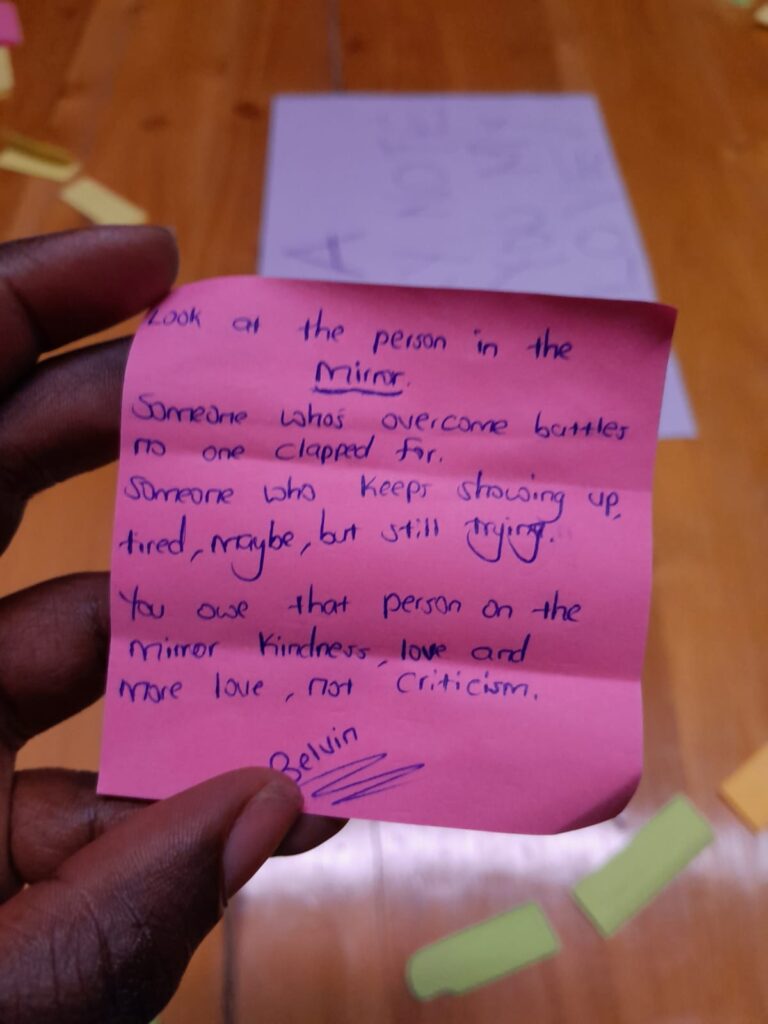 Look at the person in the
Mirror.
Someone who's overcome battles
no one clapped for.
Someone who keeps showing up,
tired, maybe, but still trying.
You owe that person on the
mirror kindness, love and
more love, not criticism.
Belvin
A
NOTE
YOU
LOVE